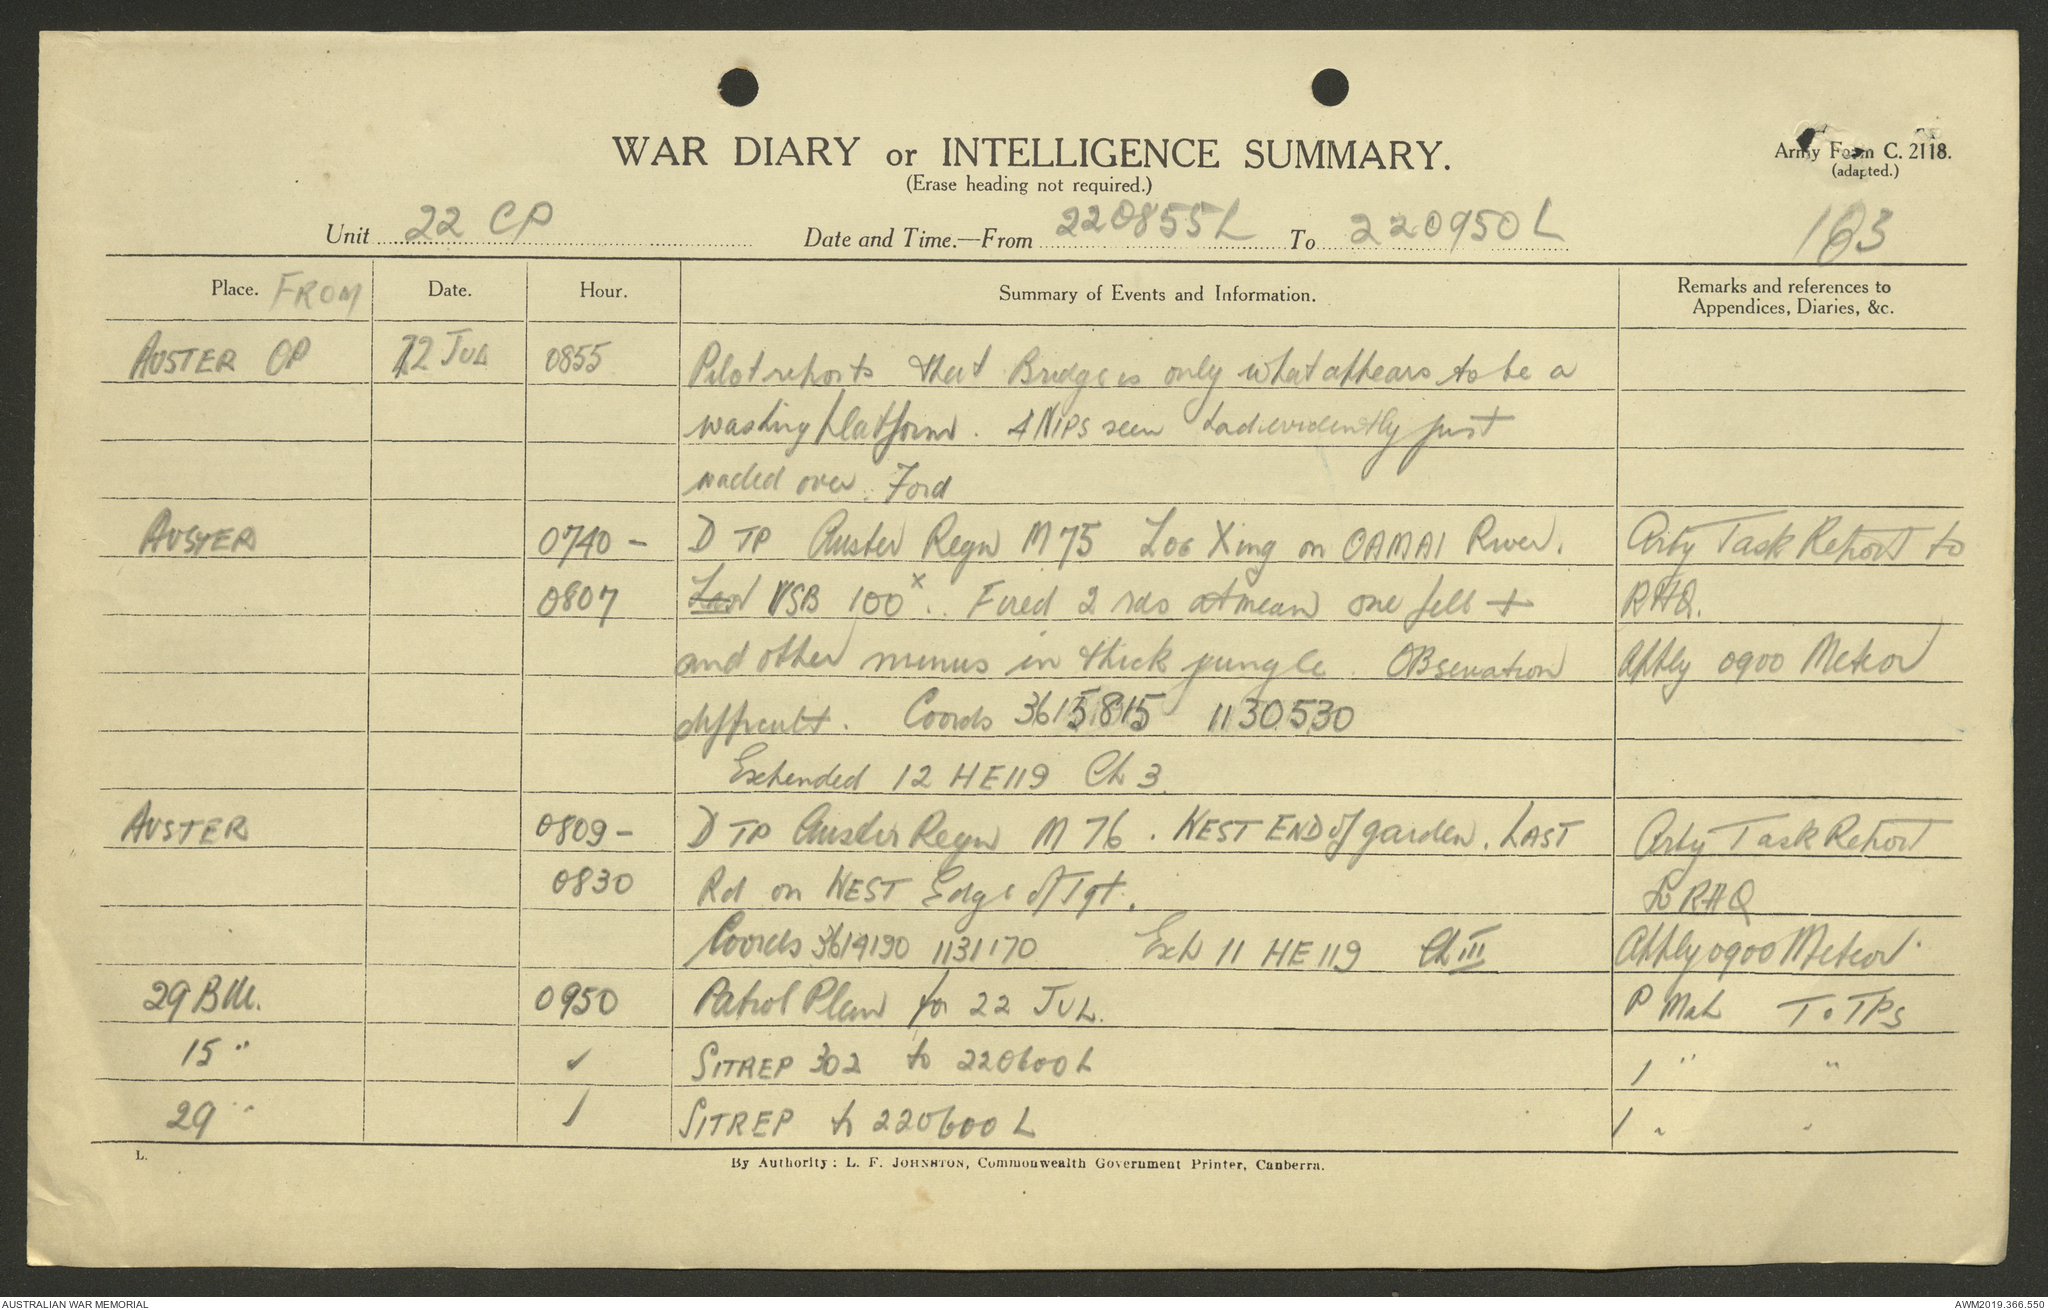 WAR DIARY or INTELLIGENCE SUMMARY.
(Erase heading not required.)
Army Form C. 2118.
(adapted.)
Unit 22 CP Date and Time.—From 220855L To 220950L 163
Place. FROM Date. Hour. Summary of Events and Information. Remarks and references to Appendices, Diaries, &c.
AUSTER OP 22 JUL 0855 Pilot reports that Bridge is only what appears to be a
washing platform. 4 NIPS seen had evidently just
waded over. Ford
AUSTER 0740 - D TP Auster Regn M 75 LOG Xing on OAMAI River. Arty Task Report to
0807 VSB 100x. Fired 2 rds at mean one fell + RHQ.
and other minus in thick jungle. OBservation Apply 0900 Meteor
difficult. Coords 3615815 1130530
Exhended 12 HE119 Ch 3.
AUSTER 0809 - D TP Auster Regn M 76. WEST END of garden. LAST Arty Task Report
0830 Rd on WEST Edge of Tgt. to RHQ
Coords 3614190 1131170 Exh 11 HE 119 Ch III Apply 0900 Meteor
29 Bde. 0950 Patrol Plan for 22 JUL. P Mah To TPs
15 " ✓ SITREP 302 to 220600L 1 " "
29 " / SITREP to 220600L 1 " "
L.
By Authority: L. F. JOHNSTON, Commonwealth Government Printer, Canberra.
AUSTRALIAN WAR MEMORIAL
AWM2019.366.550